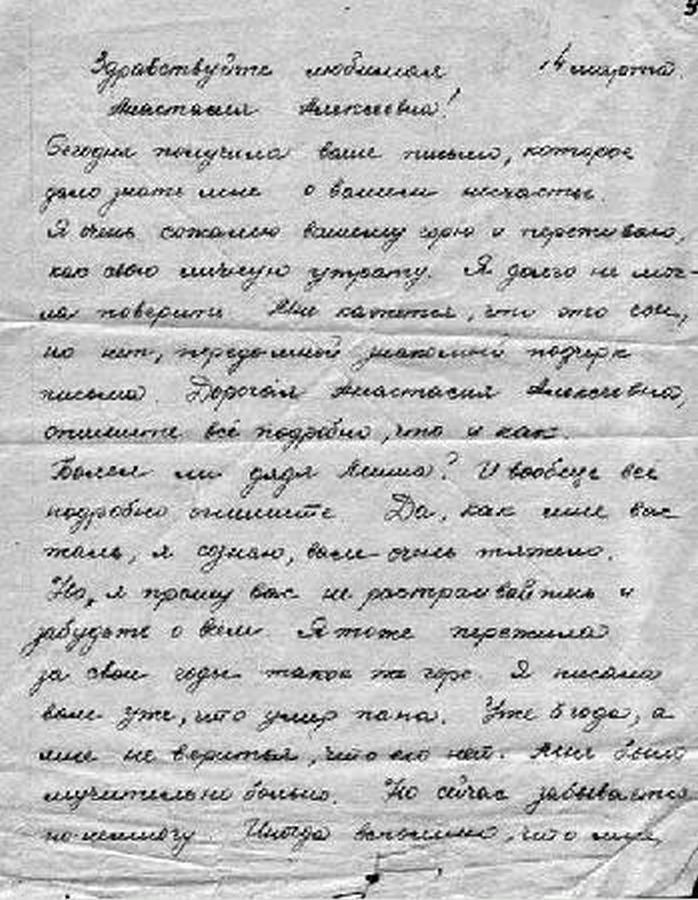 Здравствуйте любимая 14 марта.
Анастасия Алексеевна!
Сегодня получила ваше письмо, которое
дало знать мне о вашем несчастье.
Я очень сожалею вашему горю и переживаю,
как свою личную утрату. Я долго не мог-
ла поверить. Мне кажется, что это сон,
но нет, передо мной знакомый подчерк
письма. Дорогая Анастасия Алексеевна,
опишите всё подробно, что и как.
Болел ли дядя Миша? И вообще всё
подробно опишите. Да, как мне вас
жаль, я сознаю, вам очень тяжело.
Но, я прошу вас не растраивайтесь и
забудьте о всём. Я тоже пережила
за свои годы такое же горе. Я писала
вам уже, что умер папа. Уже 5 года, а
мне не верится, что его нет. Мне было
мучительно больно. Но сейчас забывается
по-немногу. Иногда вспомню, что мне,